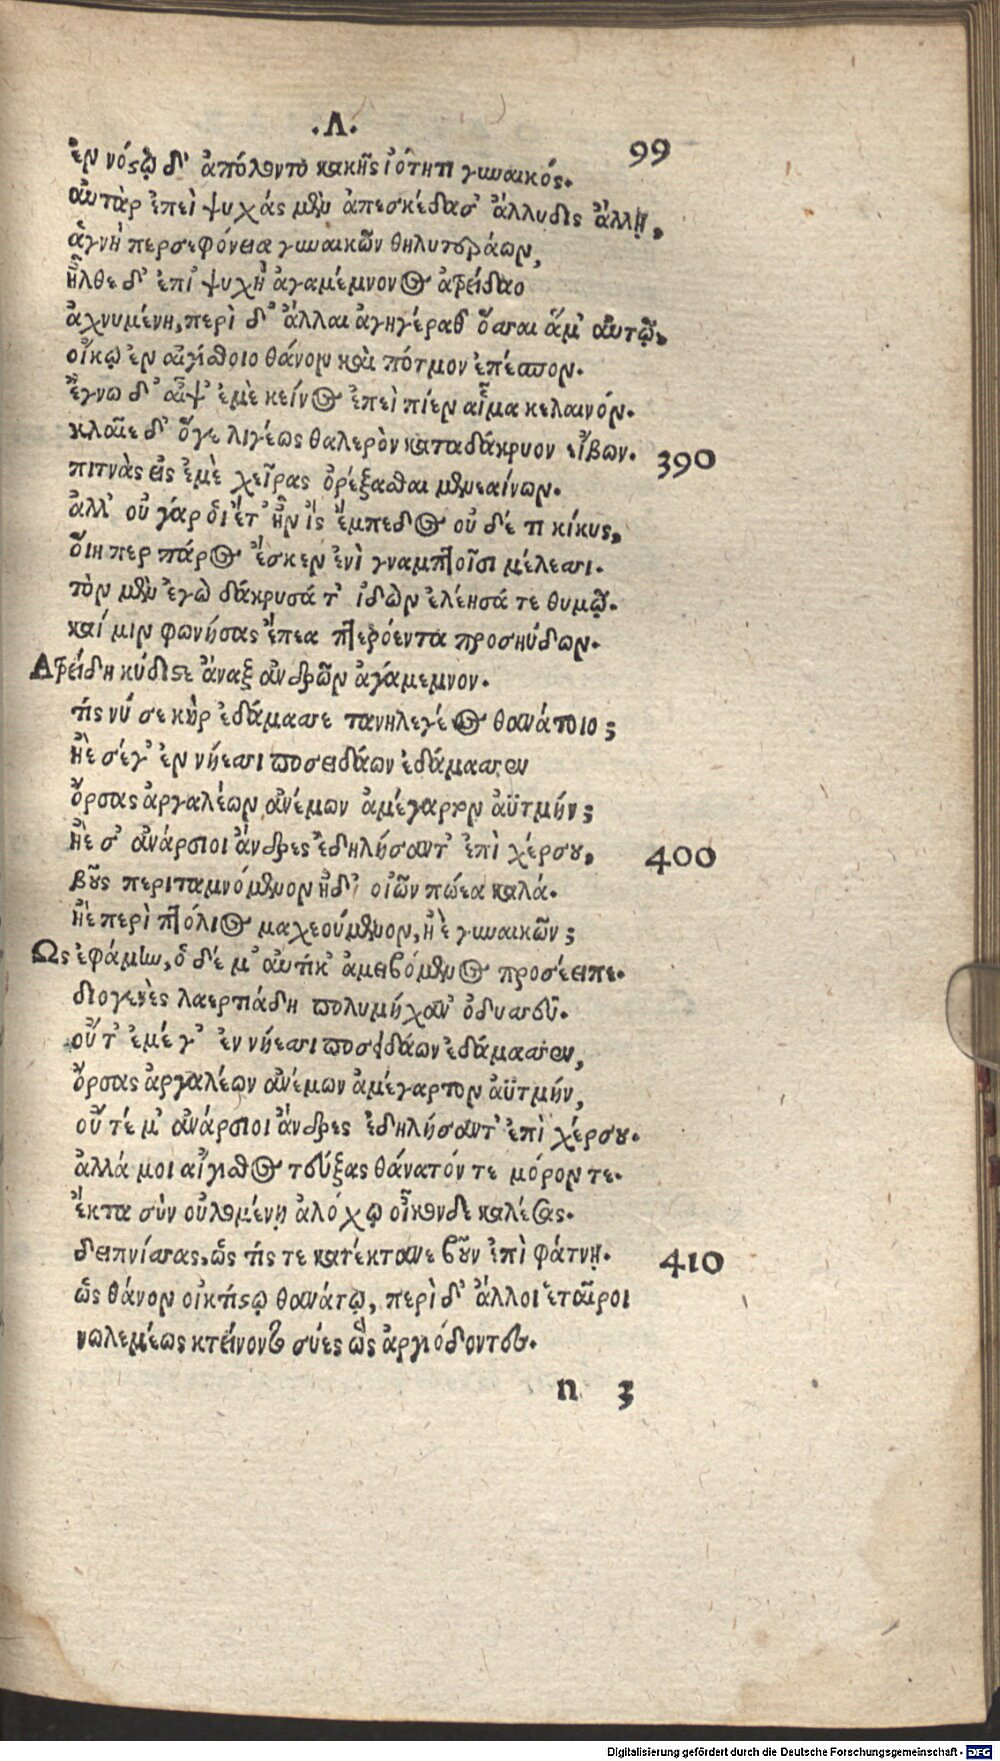 .Λ.
99
ἐν νόστῳ δ' ἀπόλοντο κακῆς ἰότητι γυναικός.
αὐτὰρ ἐπεὶ ψυχάς μὲν ἀπεσκέδασ' ἄλλυδις ἄλλη,
ἁγνὴ περσεφόνεια γυναικῶν θηλυτεράων,
ἦλθε δ' ἐπὶ ψυχὴ ἀγαμέμνονος ἀτρείδαο
ἀχνυμένη, περὶ δ' ἄλλαι ἀγηγέραθ' ὅσσαι ἅμ' αὐτῷ,
οἴκῳ ἐν αἰγίσθοιο θάνον καὶ πότμον ἐπέσπον.
ἔγνω δ' αἶψ' ἐμὲ κεῖνος ἐπεὶ πίεν αἷμα κελαινόν.
κλαῖε δ' ὅγε λιγέως θαλερὸν καταδάκρυον εἴβων. 390
πιτνὰς εἰς ἐμὲ χεῖρας ὀρέξασθαι μενεαίνων.
ἀλλ' οὐ γάρ οἱ ἔτ' ἦν ἲς ἔμπεδος οὐ δέ τι κίκυς,
οἵη περ πάρος ἔσκεν ἐνὶ γναμπτοῖσι μέλεσσι.
τὸν μὲν ἐγὼ δάκρυσά τ' ἰδὼν ἐλέησά τε θυμῷ.
καί μιν φωνήσας ἔπεα πτερόεντα προσηύδων.
Ατρείδη κύδιστε ἄναξ ἀνδρῶν ἀγάμεμνον.
τίς νύ σε κὴρ ἐδάμασσε τανηλεγέος θανάτοιο;
ἠὲ σέγ' ἐν νήεσσι ποσειδάων ἐδάμασσεν
ὄρσας ἀργαλέων ἀνέμων ἀμέγαρτον ἀϋτμήν;
ἠὲ σ' ἀνάρσιοι ἄνδρες ἐδηλήσαντ' ἐπὶ χέρσου, 400
βοῦς περιταμνόμενον ἠδ' οἰῶν πώεα καλά.
ἠὲ περὶ πτόλιος μαχεούμενον, ἠὲ γυναικῶν;
Ως ἐφάμην, ὁ δέ μ' αὐτίκ' ἀμειβόμενος προσέειπε.
διογενὲς λαερτιάδη πολυμήχαν' ὀδυσσεῦ.
οὔτ' ἐμέ γ' ἐν νήεσσι ποσειδάων ἐδάμασσεν,
ὄρσας ἀργαλέων ἀνέμων ἀμέγαρτον ἀϋτμήν,
οὔ τέ μ' ἀνάρσιοι ἄνδρες ἐδηλήσαντ' ἐπὶ χέρσου.
ἀλλά μοι αἴγισθος τεύξας θάνατόν τε μόρον τε.
ἔκτα σὺν οὐλομένῃ ἀλόχῳ οἶκονδε καλέσας.
δειπνίσσας, ὥς τίς τε κατέκτανε βοῦν ἐπὶ φάτνῃ. 410
ὣς θάνον οἰκτίστῳ θανάτῳ, περὶ δ' ἄλλοι ἑταῖροι
νωλεμέως κτείνοντο σύες ὣς ἀργιόδοντες.
n 3
Digitalisierung gefördert durch die Deutsche Forschungsgemeinschaft - DFG